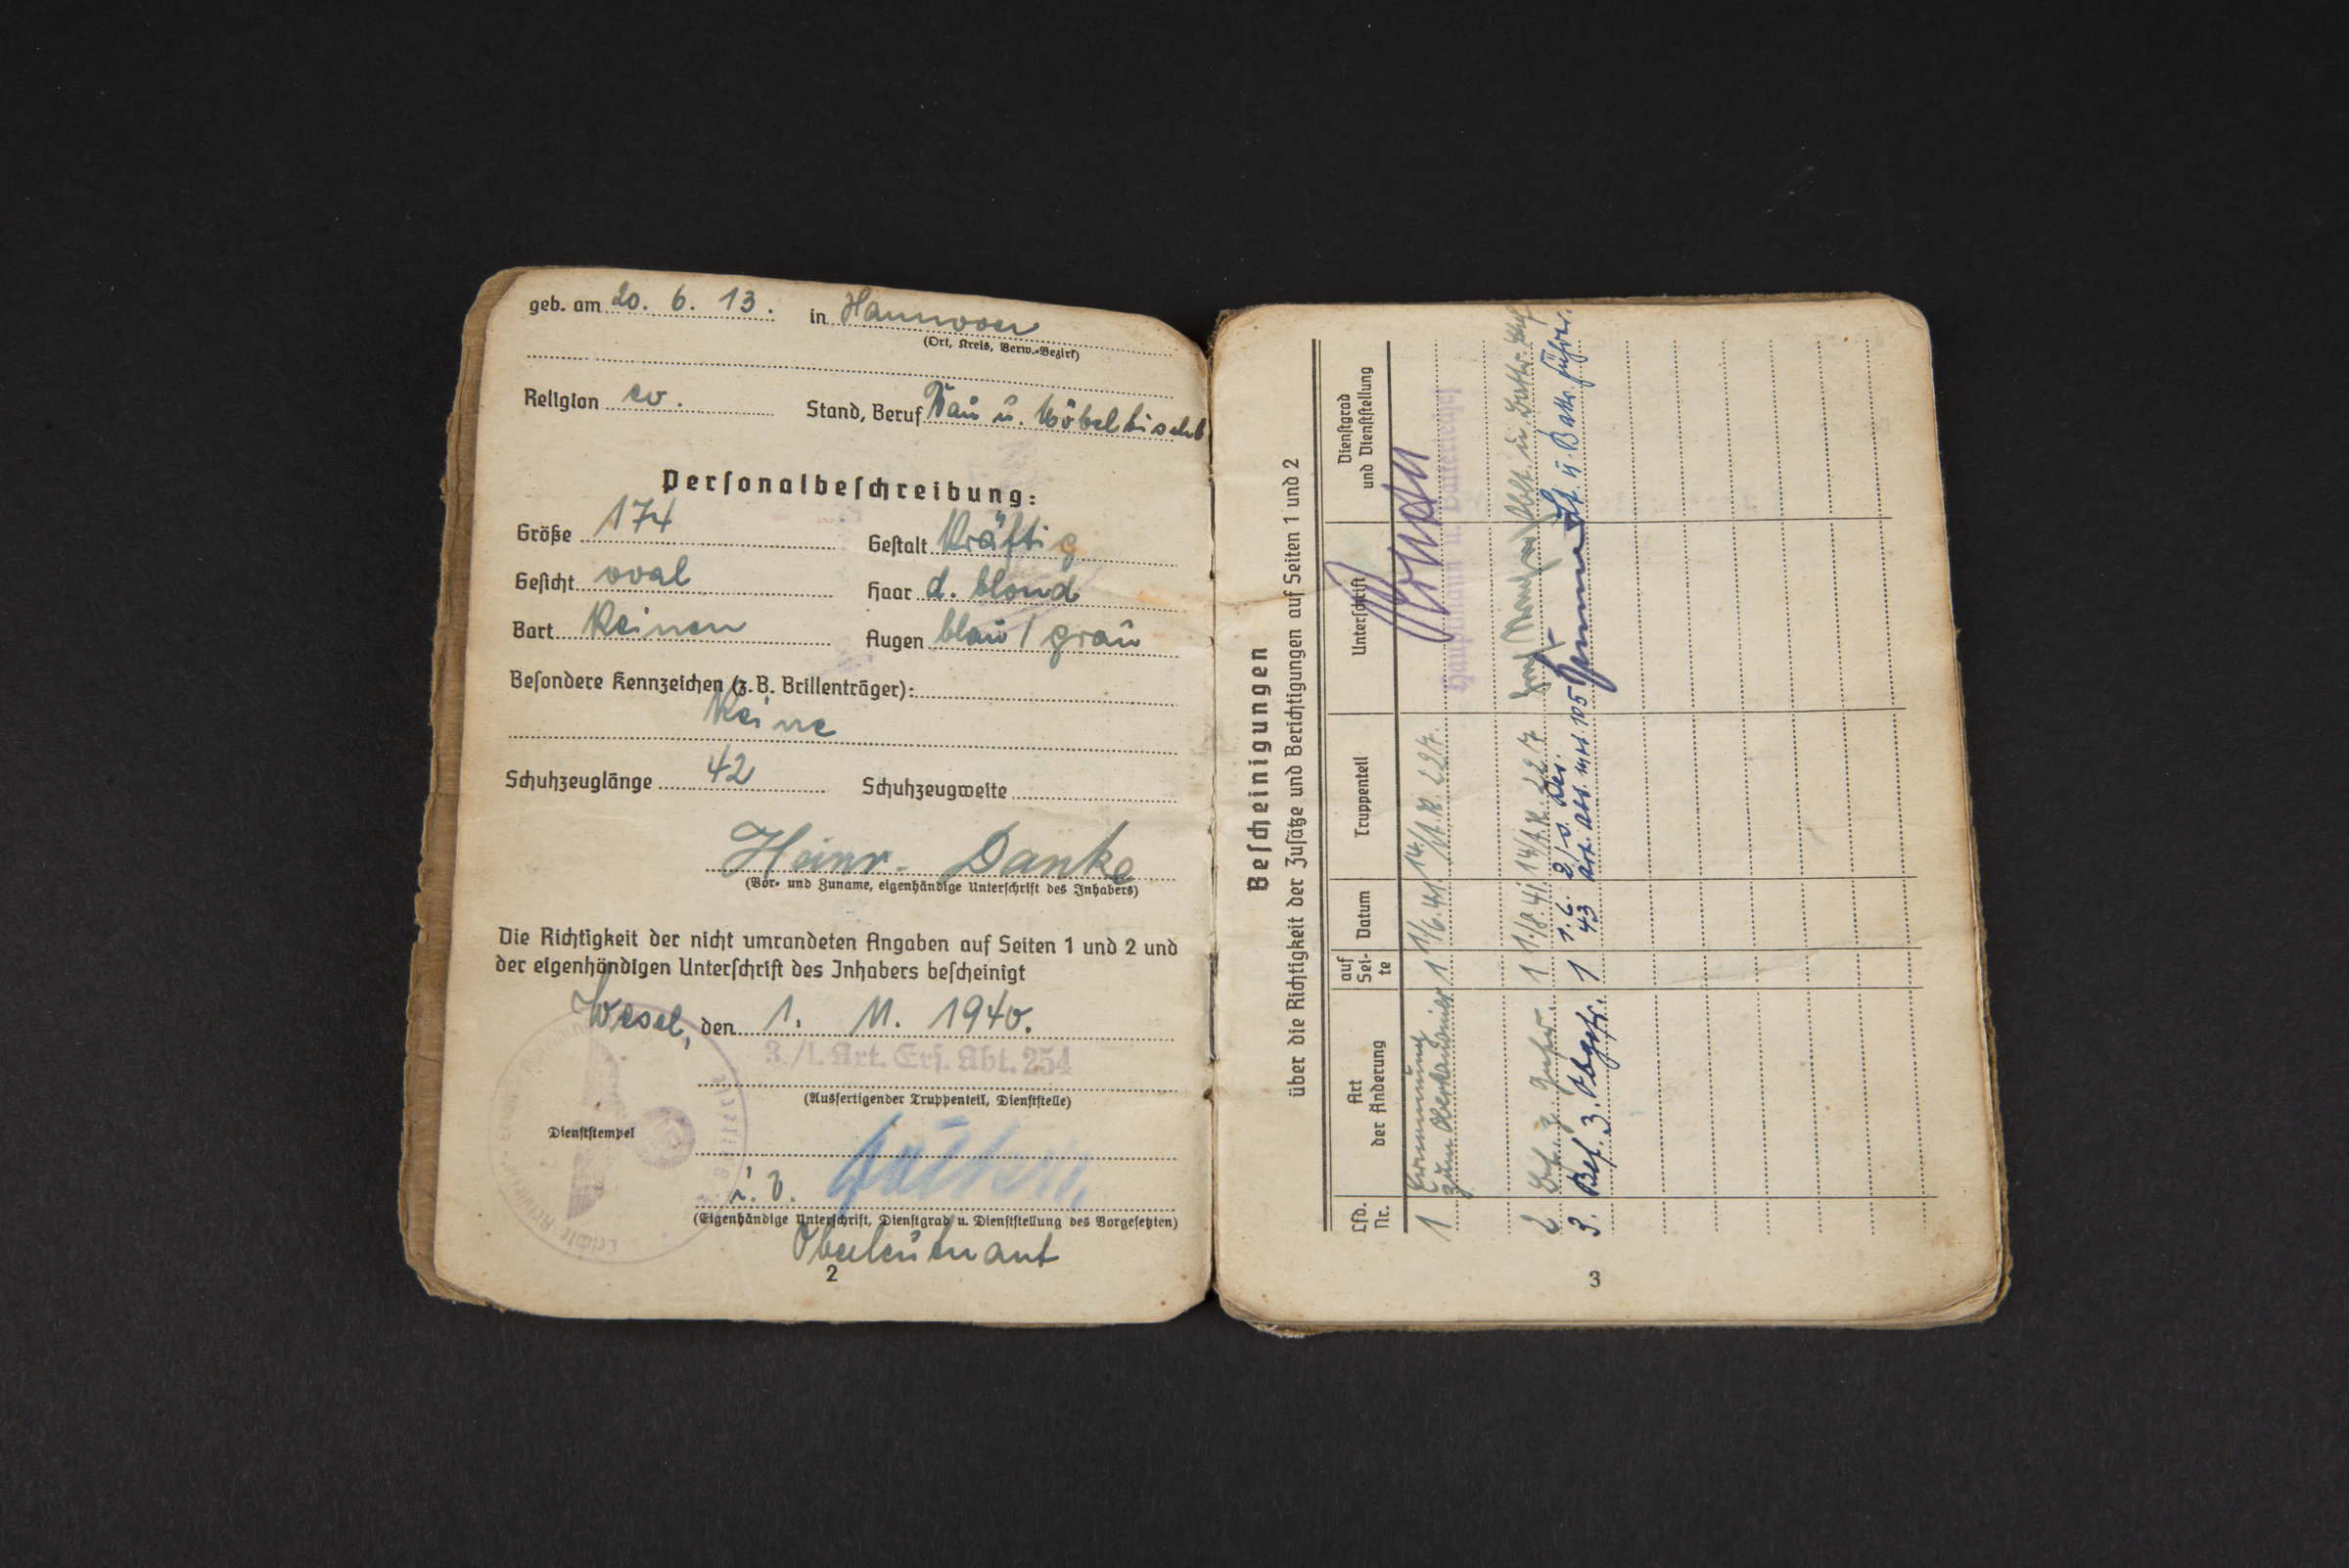 geb. am 20. 6. 13. in Hannover
(Ort, Kreis, Verw.-Bezirk)
Religion ev. Stand, Beruf Bau u. Möbeltischl
Personalbeschreibung:
Größe 174 Gestalt Kräftig
Gesicht oval Haar d. blond
Bart Keinen Augen blau / grau
Besondere Kennzeichen (z. B. Brillenträger):
Keine
Schuhzeuglänge 42 Schuhzeugweite
Heinr. Danke
(Vor- und Zuname, eigenhändige Unterschrift des Inhabers)
Die Richtigkeit der nicht umrandeten Angaben auf Seiten 1 und 2 und
der eigenhändigen Unterschrift des Inhabers bescheinigt
Wesel, den 1. 11. 1940.
3./l. Art. Ers. Abt. 254
(Ausfertigender Truppenteil, Dienststelle)
Dienststempel
i. V.
(Eigenhändige Unterschrift, Dienstgrad u. Dienststellung des Vorgesetzten)
Oberleutnant
2
Bescheinigungen
über die Richtigkeit der Zusätze und Berichtigungen auf Seiten 1 und 2
Lfd. Nr. Art der Änderung auf Seite Datum Truppenteil Unterschrift Dienstgrad und Dienststellung
1 Ernennung zum Oberkanonier 1 1/6. 41. 14./A. R. 227.
Hauptmann u. Batteriechef
2 Bef. z. Gefr. 1 1./8. 41 14/A. R. 227
3. Bef. z. Obgefr. 1 1. 6. 43 2/s. Res. Art. Abt. 105 Lt. u. Battr. führer.
3